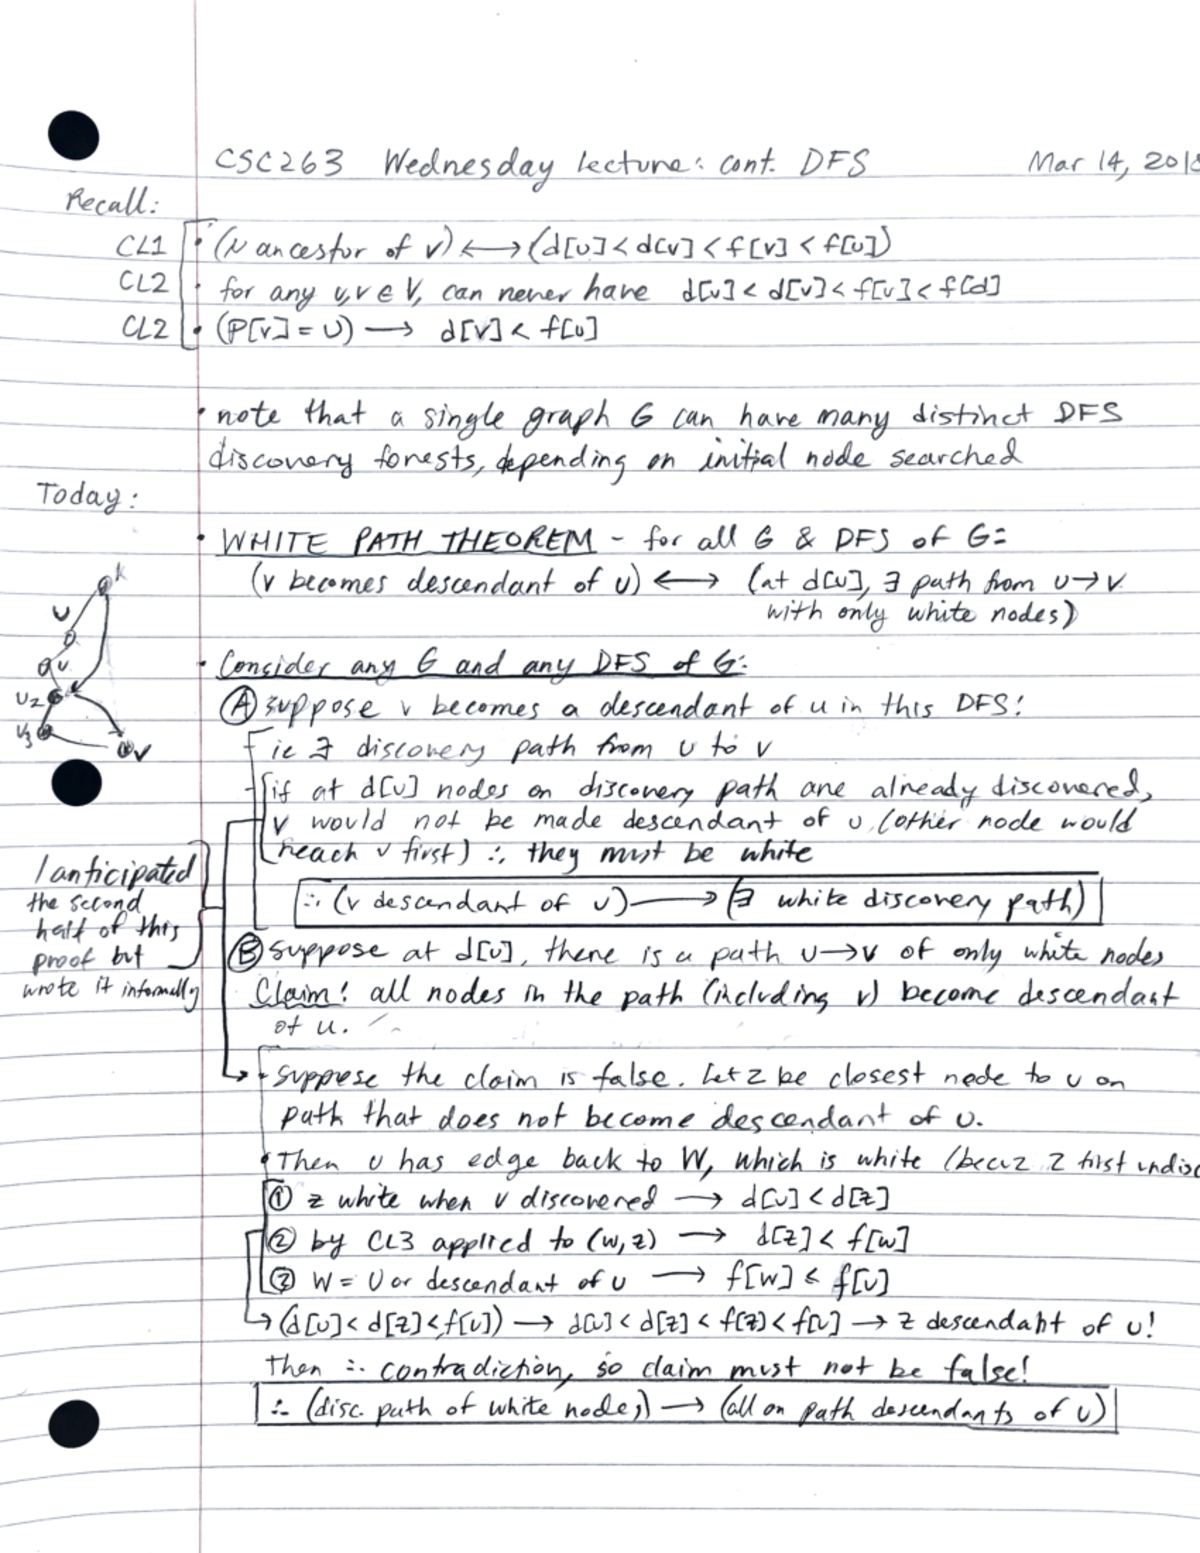 CSC263 Wednesday lecture: cont. DFS Mar 14, 201
Recall:
CL1 • (u ancestor of v) ⟷ (d[u] < d[v] < f[v] < f[u])
CL2 • for any u,v ∈ V, can never have d[u] < d[v] < f[u] < f[d]
CL2 • (P[v] = u) ⟶ d[v] < f[u]
• note that a single graph G can have many distinct DFS
discovery forests, depending on initial node searched
Today:
• WHITE PATH THEOREM - for all G & DFS of G:
(v becomes descendant of u) ⟷ (at d[u], ∃ path from u→v
with only white nodes)
k
u
u
u2
v3
v
• Consider any G and any DFS of G:
Ⓐ suppose v becomes a descendant of u in this DFS!
ie ∃ discovery path from u to v
if at d[u] nodes on discovery path are already discovered,
v would not be made descendant of u, (other node would
reach v first) ∴ they must be white
∴ (v descendant of u) ⟶ (∃ white discovery path)
I anticipated
the second
half of this
proof but
wrote it informally
Ⓑ suppose at d[u], there is a path u→v of only white nodes
Claim! all nodes in the path (including v) become descendant
of u.
• suppose the claim is false. Let z be closest node to u on
path that does not become descendant of u.
• Then u has edge back to W, which is white (becuz z first undisc
① z white when v discovered ⟶ d[u] < d[z]
② by CL3 applied to (w,z) ⟶ d[z] < f[w]
③ W = U or descendant of u ⟶ f[w] ≤ f[u]
↳ (d[u] < d[z] < f[u]) ⟶ d[u] < d[z] < f[z] < f[u] → z descendant of u!
Then ∴ contradiction, so claim must not be false!
∴ (disc. path of white nodes) ⟶ (all on path descendants of u)